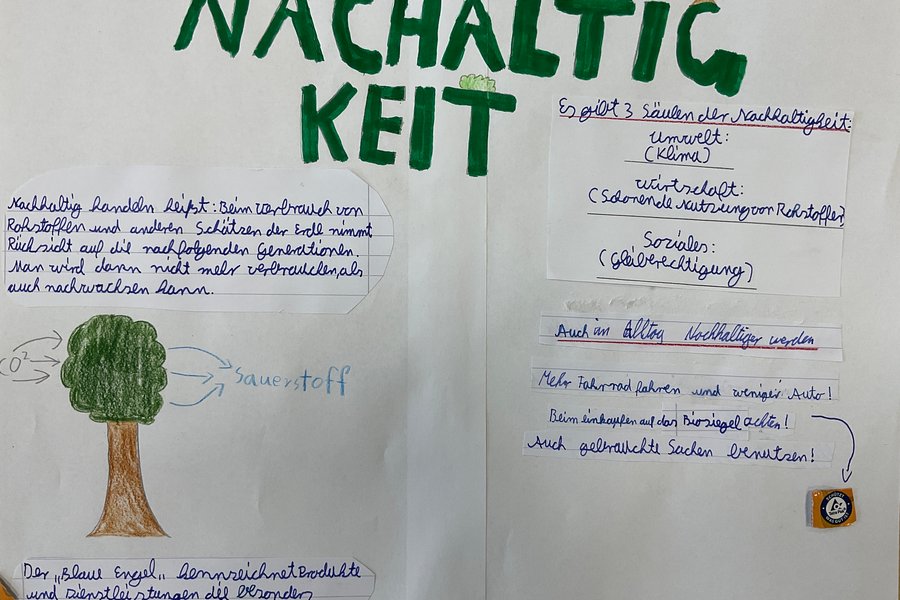 NACHALTIG
KEIT
Nachhaltig handeln heißt: Beim verbrauch von
Rohstoffen und anderen Schätzen der Erde nimmt
Rücksicht auf die nachfolgenden Generationen.
Man wird dann nicht mehr verbrauchen, als
auch nachwachsen kann.
CO²
Sauerstoff
Der „Blaue Engel„ kennzeichnet Produkte
und Dienstleistungen die besonders
Es gibt 3 Säulen der Nachhaltigkeit:
Umwelt:
(Klima)
Wirtschaft:
(Schonende Nutzung von Rohstoffen)
Soziales:
(Gleiberechtigung)
Auch im Alltag Nachhaltiger werden
Mehr Fahrrad fahren und weniger Auto!
Beim einkaufen auf das Biosiegel achten!
Auch gebrauchte Sachen benutzen!